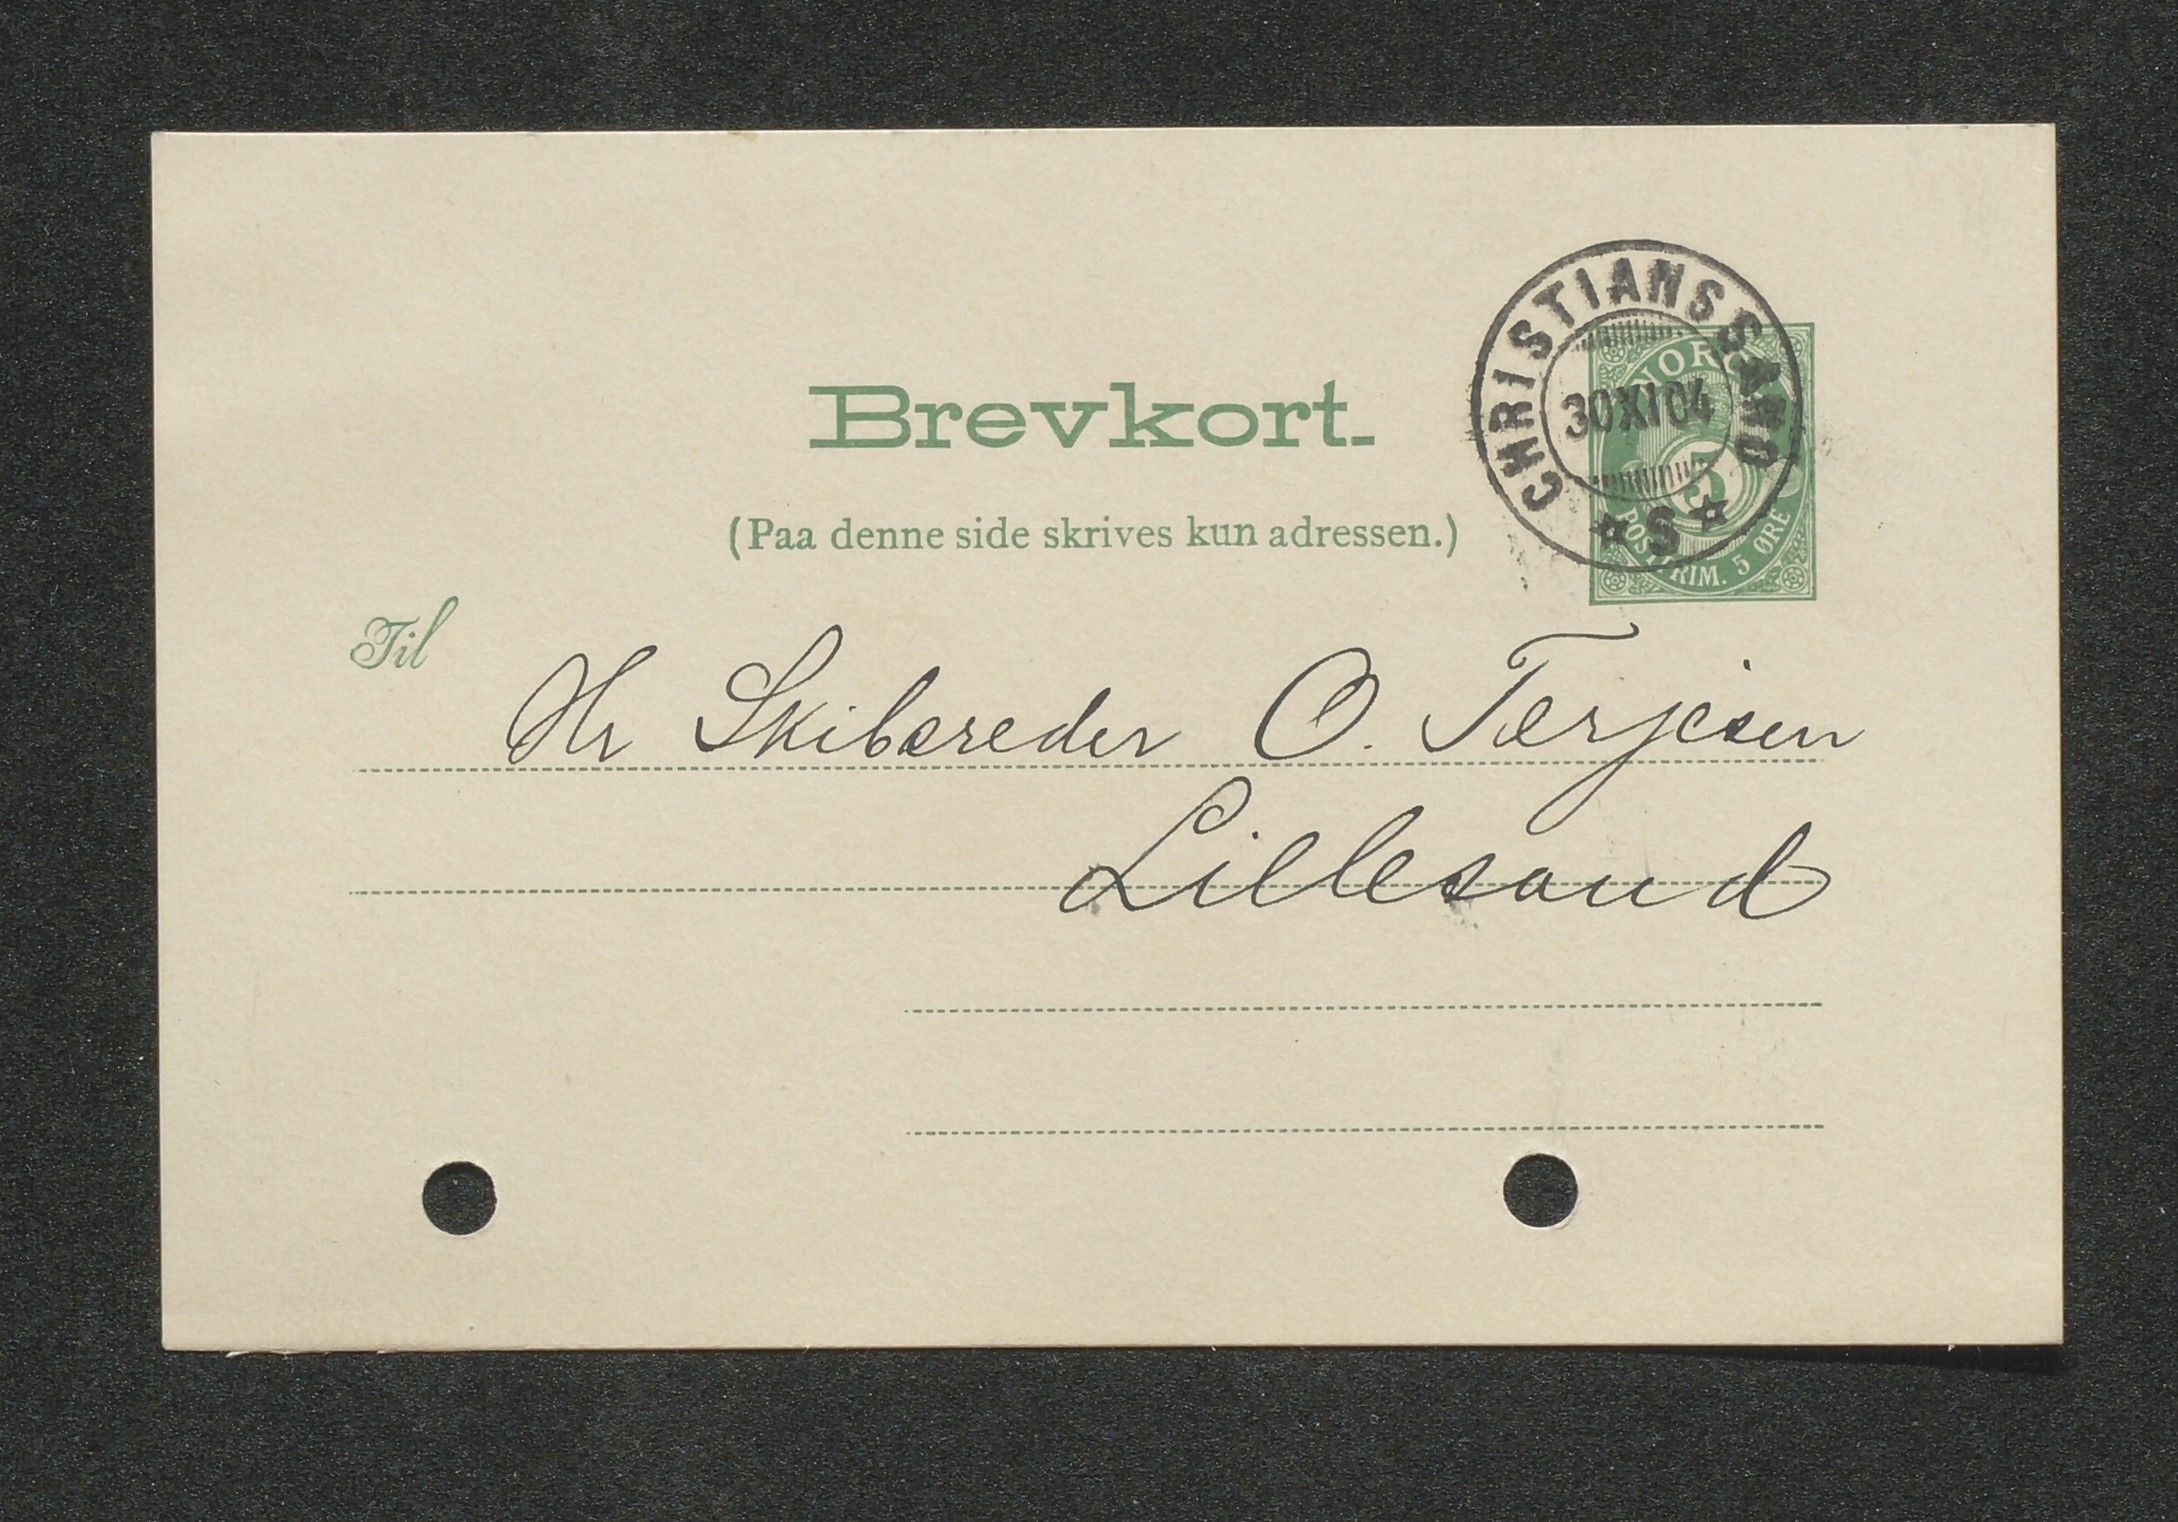 Brevkort.
(Paa denne side skrives kun adressen.)
CHRISTIANSSAND
30 XI 04
S
NORGE
5
POSTFRIM. 5 ØRE
Til
Hr Skibsreder O. Terjesen
Lillesand